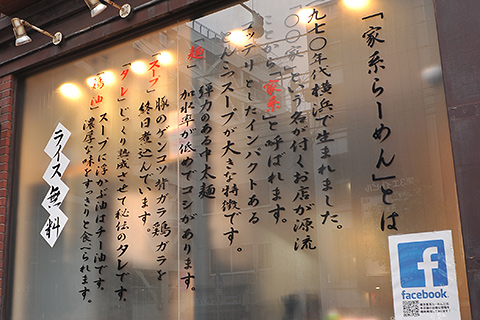 「家系らーめん」とは
九七〇年代横浜で生まれました。
〇〇家という名が付くお店が源流
ことから「家系」と呼ばれます。
テリとしたインパクトある
こつスープが大きな特徴です。
麺
弾力のある中太麺
加水率が低めでコシがあります。
「スープ」
豚のゲンコツ、ガラ鶏ガラを
終日煮込んでいます。
「タレ」じっくり熟成させて秘伝のタレです。
「鶏油」
スープに浮かぶ油はチー油です。
濃厚な味をすっきりと食べられます。
ライス無料
facebook